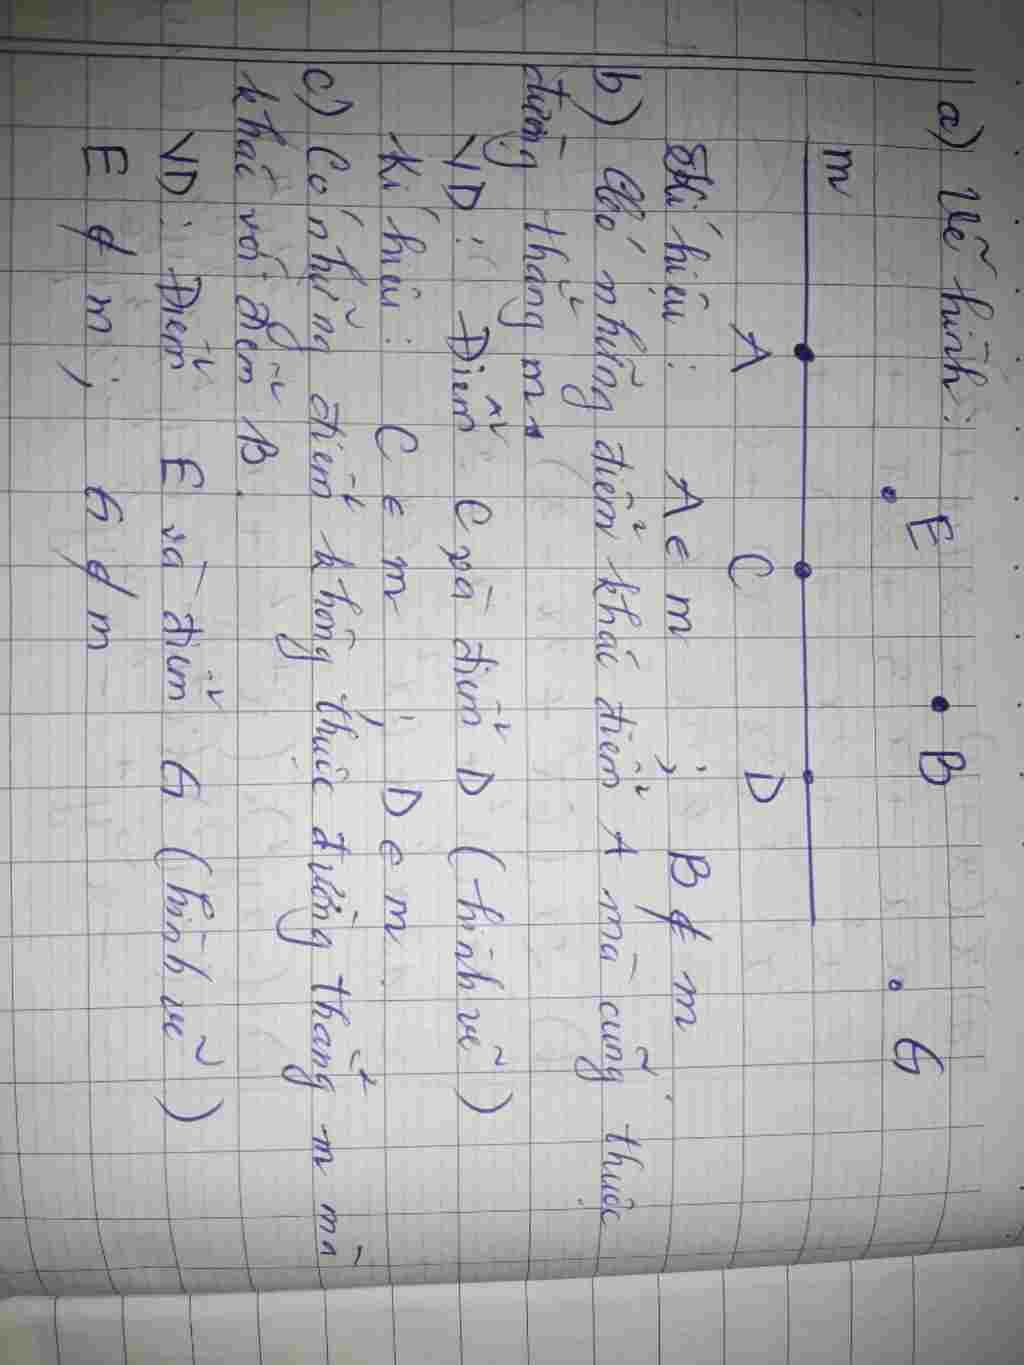 a) Vẽ hình:
m A C D E B G
Kí hiệu: A ∈ m ; B ∉ m
b) Có những điểm khác điểm A mà cũng thuộc
đường thẳng m.
VD: Điểm C và điểm D (hình vẽ)
Kí hiệu: C ∈ m ; D ∈ m
c) Có những điểm không thuộc đường thẳng m mà
khác với điểm B.
VD: Điểm E và điểm G (hình vẽ)
E ∉ m ; G ∉ m